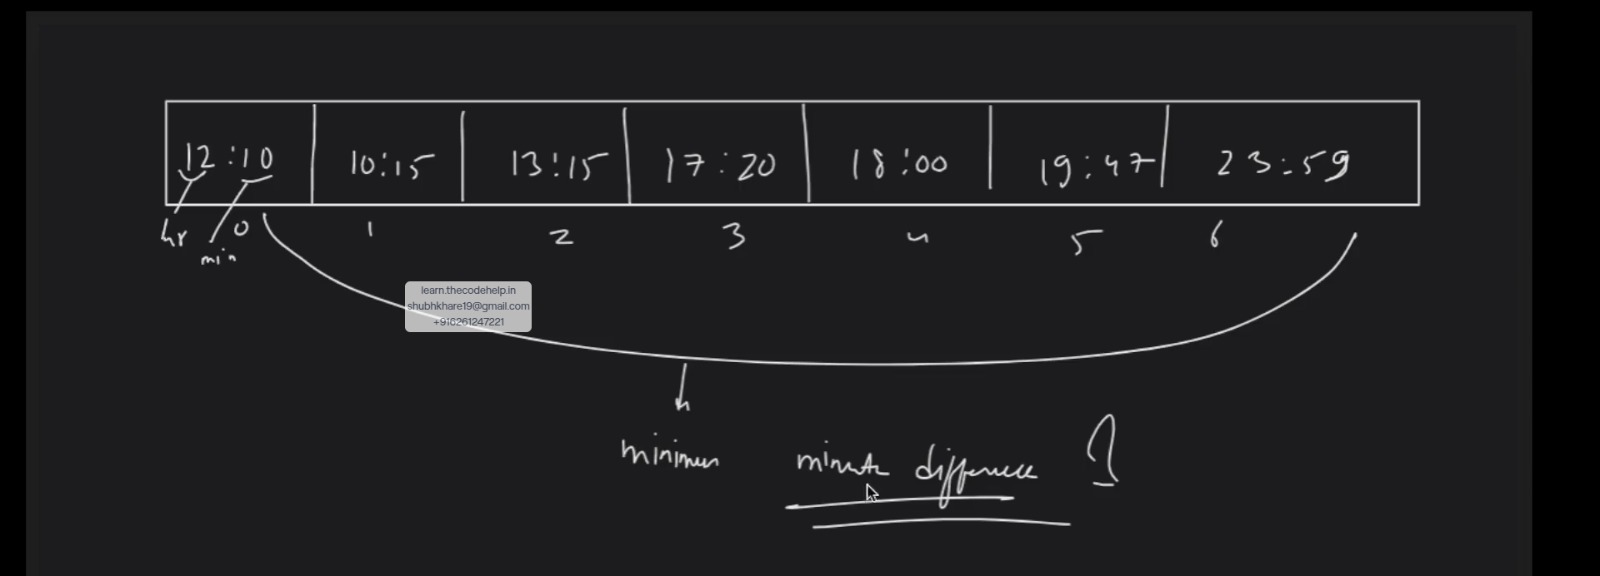 12:10 10:15 13:15 17:20 18:00 19:47 23:59
hr 0 1 2 3 4 5 6
min
learn.thecodehelp.in
shubhkhare19@gmail.com
+916261247221
minimum minute difference ?